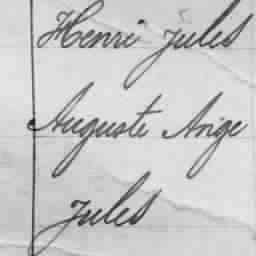 Henri Jules
Auguste Ange
Jules